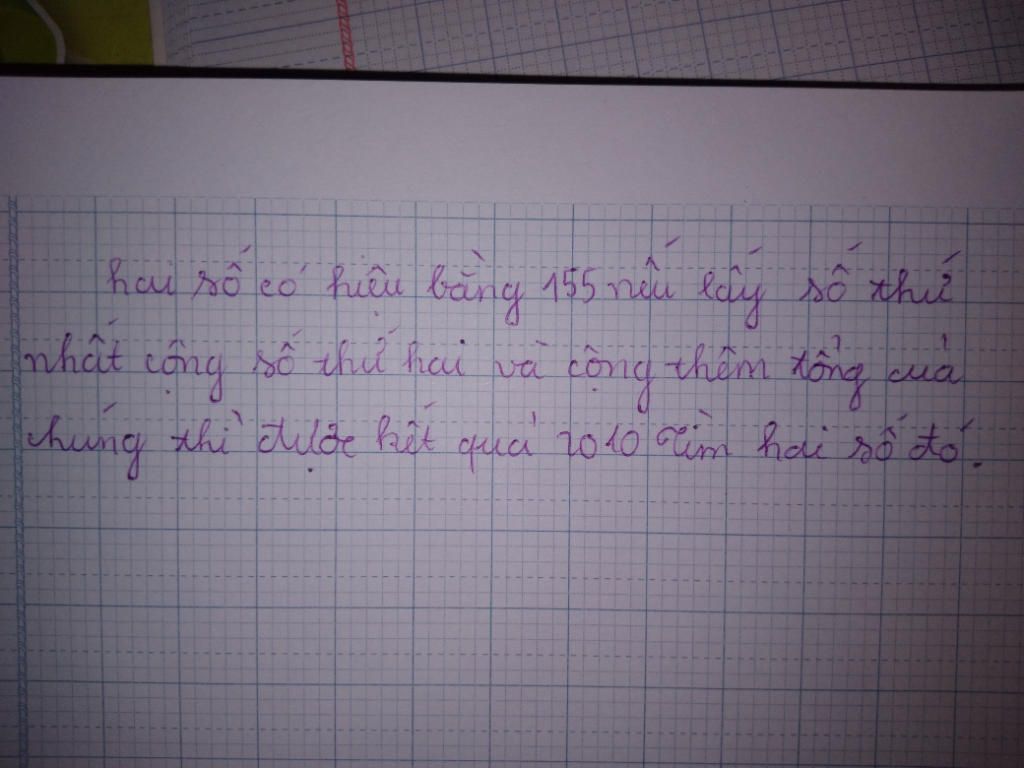 hai số có hiệu bằng 155 nếu lấy số thứ
nhất cộng số thứ hai và cộng thêm tổng của
chúng thì được kết quả 2010 Tìm hai số đó.